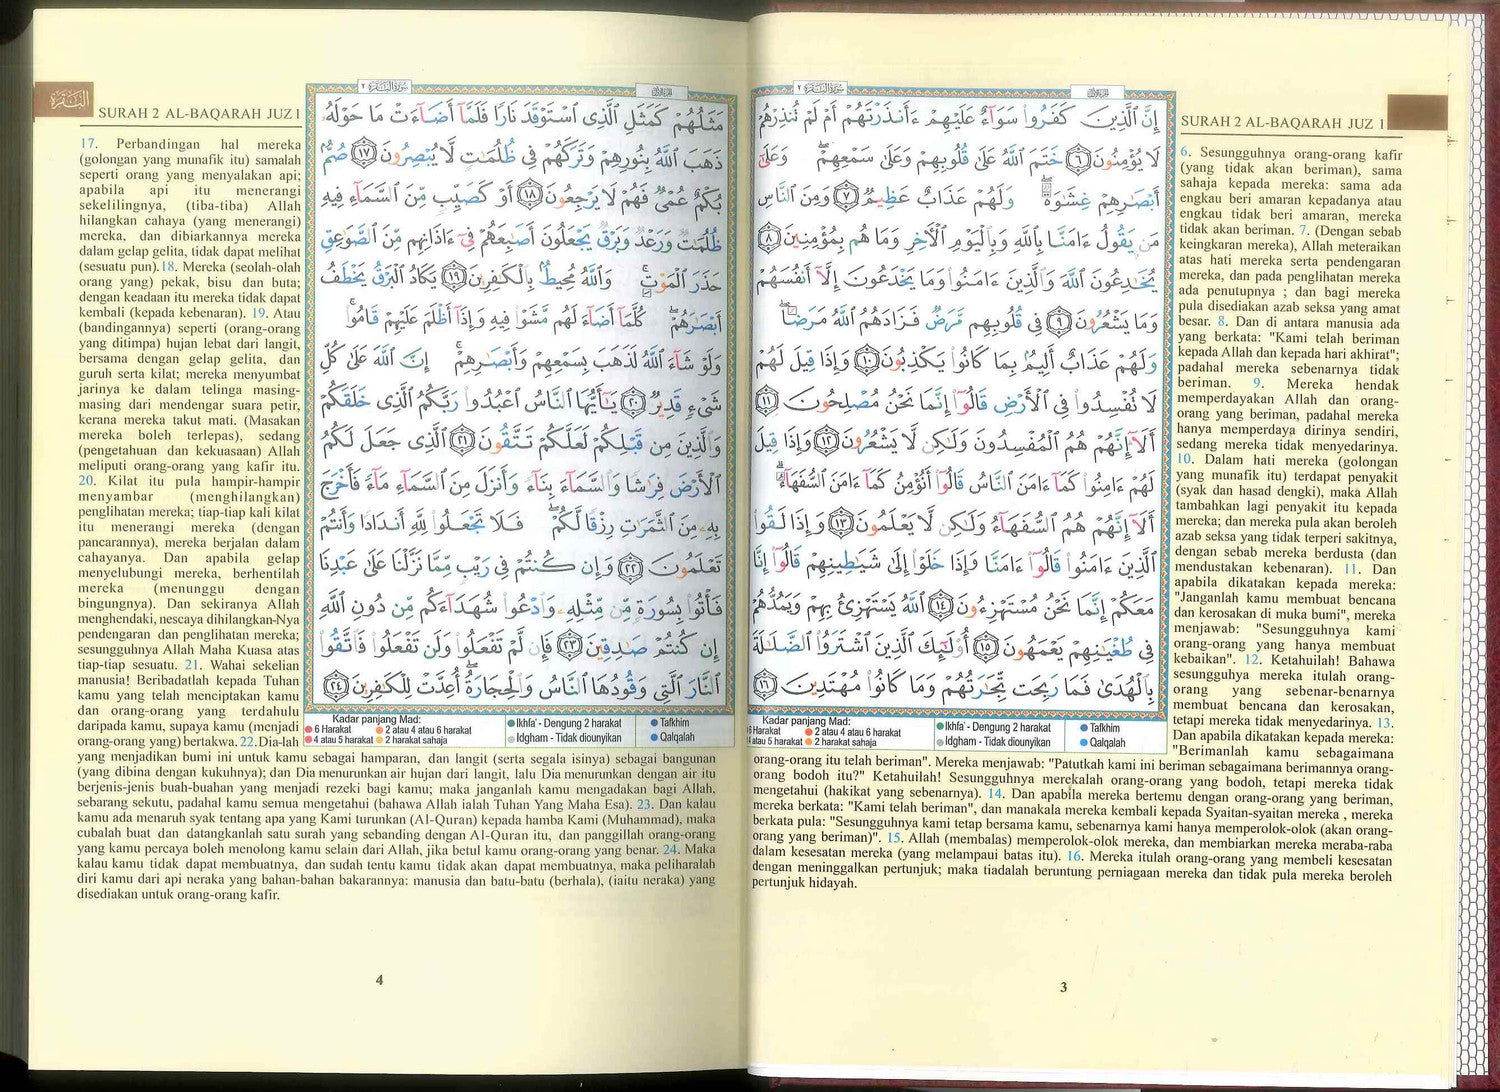 سورة البقرة ٢
الجزء الأول
SURAH 2 AL-BAQARAH JUZ 1
إِنَّ الَّذِينَ كَفَرُوا سَوَاءٌ عَلَيْهِمْ ءَأَنذَرْتَهُمْ أَمْ لَمْ تُنذِرْهُمْ
لَا يُؤْمِنُونَ ٦ خَتَمَ اللَّهُ عَلَىٰ قُلُوبِهِمْ وَعَلَىٰ سَمْعِهِمْ ۖ وَعَلَىٰ
أَبْصَـٰرِهِمْ غِشَـٰوَةٌ ۖ وَلَهُمْ عَذَابٌ عَظِيمٌ ٧ وَمِنَ النَّاسِ
مَن يَقُولُ ءَامَنَّا بِاللَّهِ وَبِالْيَوْمِ الْأَخِرِ وَمَا هُم بِمُؤْمِنِينَ ٨
يُخَـٰدِعُونَ اللَّهَ وَالَّذِينَ ءَامَنُوا وَمَا يَخْدَعُونَ إِلَّا أَنفُسَهُمْ
وَمَا يَشْعُرُونَ ٩ فِي قُلُوبِهِم مَّرَضٌ فَزَادَهُمُ اللَّهُ مَرَضًا ۖ
وَلَهُمْ عَذَابٌ أَلِيمٌ بِمَا كَانُوا يَكْذِبُونَ ١٠ وَإِذَا قِيلَ لَهُمْ
لَا تُفْسِدُوا فِي الْأَرْضِ قَالُوا إِنَّمَا نَحْنُ مُصْلِحُونَ ١١
أَلَا إِنَّهُمْ هُمُ الْمُفْسِدُونَ وَلَـٰكِن لَّا يَشْعُرُونَ ١٢ وَإِذَا قِيلَ
لَهُمْ ءَامِنُوا كَمَا ءَامَنَ النَّاسُ قَالُوا أَنُؤْمِنُ كَمَا ءَامَنَ السُّفَهَاءُ ۗ
أَلَا إِنَّهُمْ هُمُ السُّفَهَاءُ وَلَـٰكِن لَّا يَعْلَمُونَ ١٣ وَإِذَا لَقُوا
الَّذِينَ ءَامَنُوا قَالُوا ءَامَنَّا وَإِذَا خَلَوْا إِلَىٰ شَيَـٰطِينِهِمْ قَالُوا إِنَّا
مَعَكُمْ إِنَّمَا نَحْنُ مُسْتَهْزِءُونَ ١٤ اللَّهُ يَسْتَهْزِئُ بِهِمْ وَيَمُدُّهُمْ
فِي طُغْيَـٰنِهِمْ يَعْمَهُونَ ١٥ أُولَـٰئِكَ الَّذِينَ اشْتَرَوُا الضَّلَـٰلَةَ
بِالْهُدَىٰ فَمَا رَبِحَت تِّجَـٰرَتُهُمْ وَمَا كَانُوا مُهْتَدِينَ ١٦
Kadar panjang Mad:
6 Harakat
2 atau 4 atau 6 harakat
4 atau 5 harakat
2 harakat sahaja
Ikhfa' - Dengung 2 harakat
Idgham - Tidak diounyikan
Tafkhim
Qalqalah
6. Sesungguhnya orang-orang kafir
(yang tidak akan beriman), sama
sahaja kepada mereka: sama ada
engkau beri amaran kepadanya atau
engkau tidak beri amaran, mereka
tidak akan beriman. 7. (Dengan sebab
keingkaran mereka), Allah meteraikan
atas hati mereka serta pendengaran
mereka, dan pada penglihatan mereka
ada penutupnya ; dan bagi mereka
pula disediakan azab seksa yang amat
besar. 8. Dan di antara manusia ada
yang berkata: "Kami telah beriman
kepada Allah dan kepada hari akhirat";
padahal mereka sebenarnya tidak
beriman. 9. Mereka hendak
memperdayakan Allah dan orang-
orang yang beriman, padahal mereka
hanya memperdaya dirinya sendiri,
sedang mereka tidak menyedarinya.
10. Dalam hati mereka (golongan
yang munafik itu) terdapat penyakit
(syak dan hasad dengki), maka Allah
tambahkan lagi penyakit itu kepada
mereka; dan mereka pula akan beroleh
azab seksa yang tidak terperi sakitnya,
dengan sebab mereka berdusta (dan
mendustakan kebenaran). 11. Dan
apabila dikatakan kepada mereka:
"Janganlah kamu membuat bencana
dan kerosakan di muka bumi", mereka
menjawab: "Sesungguhnya kami
orang-orang yang hanya membuat
kebaikan". 12. Ketahuilah! Bahawa
sesungguhya mereka itulah orang-
orang yang sebenar-benarnya
membuat bencana dan kerosakan,
tetapi mereka tidak menyedarinya. 13.
Dan apabila dikatakan kepada mereka:
"Berimanlah kamu sebagaimana
orang-orang itu telah beriman". Mereka menjawab: "Patutkah kami ini beriman sebagaimana berimannya orang-
orang bodoh itu?" Ketahuilah! Sesungguhnya merekalah orang-orang yang bodoh, tetapi mereka tidak
mengetahui (hakikat yang sebenarnya). 14. Dan apabila mereka bertemu dengan orang-orang yang beriman,
mereka berkata: "Kami telah beriman", dan manakala mereka kembali kepada Syaitan-syaitan mereka , mereka
berkata pula: "Sesungguhnya kami tetap bersama kamu, sebenarnya kami hanya memperolok-olok (akan orang-
orang yang beriman)". 15. Allah (membalas) memperolok-olok mereka, dan membiarkan mereka meraba-raba
dalam kesesatan mereka (yang melampaui batas itu). 16. Mereka itulah orang-orang yang membeli kesesatan
dengan meninggalkan pertunjuk; maka tiadalah beruntung perniagaan mereka dan tidak pula mereka beroleh
pertunjuk hidayah.
3
البقرة
SURAH 2 AL-BAQARAH JUZ 1
سورة البقرة ٢
الجزء الأول
مَثَلُهُمْ كَمَثَلِ الَّذِي اسْتَوْقَدَ نَارًا فَلَمَّا أَضَاءَتْ مَا حَوْلَهُ
ذَهَبَ اللَّهُ بِنُورِهِمْ وَتَرَكَهُمْ فِي ظُلُمَـٰتٍ لَّا يُبْصِرُونَ ١٧ صُمٌّ
بُكْمٌ عُمْيٌ فَهُمْ لَا يَرْجِعُونَ ١٨ أَوْ كَصَيِّبٍ مِّنَ السَّمَاءِ فِيهِ
ظُلُمَـٰتٌ وَرَعْدٌ وَبَرْقٌ يَجْعَلُونَ أَصَـٰبِعَهُمْ فِي ءَاذَانِهِم مِّنَ الصَّوَٰعِقِ
حَذَرَ الْمَوْتِ ۚ وَاللَّهُ مُحِيطٌ بِالْكَـٰفِرِينَ ١٩ يَكَادُ الْبَرْقُ يَخْطَفُ
أَبْصَـٰرَهُمْ ۖ كُلَّمَا أَضَاءَ لَهُم مَّشَوْا فِيهِ وَإِذَا أَظْلَمَ عَلَيْهِمْ قَامُوا ۚ
وَلَوْ شَاءَ اللَّهُ لَذَهَبَ بِسَمْعِهِمْ وَأَبْصَـٰرِهِمْ ۚ إِنَّ اللَّهَ عَلَىٰ كُلِّ
شَيْءٍ قَدِيرٌ ٢٠ يَـٰأَيُّهَا النَّاسُ اعْبُدُوا رَبَّكُمُ الَّذِي خَلَقَكُمْ
وَالَّذِينَ مِن قَبْلِكُمْ لَعَلَّكُمْ تَتَّقُونَ ٢١ الَّذِي جَعَلَ لَكُمُ
الْأَرْضَ فِرَٰشًا وَالسَّمَاءَ بِنَاءً وَأَنزَلَ مِنَ السَّمَاءِ مَاءً فَأَخْرَجَ
بِهِ مِنَ الثَّمَرَٰتِ رِزْقًا لَّكُمْ ۖ فَلَا تَجْعَلُوا لِلَّهِ أَندَادًا وَأَنتُمْ
تَعْلَمُونَ ٢٢ وَإِن كُنتُمْ فِي رَيْبٍ مِّمَّا نَزَّلْنَا عَلَىٰ عَبْدِنَا
فَأْتُوا بِسُورَةٍ مِّن مِّثْلِهِ وَادْعُوا شُهَدَاءَكُم مِّن دُونِ اللَّهِ
إِن كُنتُمْ صَـٰدِقِينَ ٢٣ فَإِن لَّمْ تَفْعَلُوا وَلَن تَفْعَلُوا فَاتَّقُوا
النَّارَ الَّتِي وَقُودُهَا النَّاسُ وَالْحِجَارَةُ ۖ أُعِدَّتْ لِلْكَـٰفِرِينَ ٢٤
Kadar panjang Mad:
6 Harakat
2 atau 4 atau 6 harakat
4 atau 5 harakat
2 harakat sahaja
Ikhfa' - Dengung 2 harakat
Idgham - Tidak diounyikan
Tafkhim
Qalqalah
17. Perbandingan hal mereka
(golongan yang munafik itu) samalah
seperti orang yang menyalakan api;
apabila api itu menerangi
sekelilingnya, (tiba-tiba) Allah
hilangkan cahaya (yang menerangi)
mereka, dan dibiarkannya mereka
dalam gelap gelita, tidak dapat melihat
(sesuatu pun).18. Mereka (seolah-olah
orang yang) pekak, bisu dan buta;
dengan keadaan itu mereka tidak dapat
kembali (kepada kebenaran). 19. Atau
(bandingannya) seperti (orang-orang
yang ditimpa) hujan lebat dari langit,
bersama dengan gelap gelita, dan
guruh serta kilat; mereka menyumbat
jarinya ke dalam telinga masing-
masing dari mendengar suara petir,
kerana mereka takut mati. (Masakan
mereka boleh terlepas), sedang
(pengetahuan dan kekuasaan) Allah
meliputi orang-orang yang kafir itu.
20. Kilat itu pula hampir-hampir
menyambar (menghilangkan)
penglihatan mereka; tiap-tiap kali kilat
itu menerangi mereka (dengan
pancarannya), mereka berjalan dalam
cahayanya. Dan apabila gelap
menyelubungi mereka, berhentilah
mereka (menunggu dengan
bingungnya). Dan sekiranya Allah
menghendaki, nescaya dihilangkan-Nya
pendengaran dan penglihatan mereka;
sesungguhnya Allah Maha Kuasa atas
tiap-tiap sesuatu. 21. Wahai sekelian
manusia! Beribadatlah kepada Tuhan
kamu yang telah menciptakan kamu
dan orang-orang yang terdahulu
daripada kamu, supaya kamu (menjadi
orang-orang yang) bertakwa. 22.Dia-lah
yang menjadikan bumi ini untuk kamu sebagai hamparan, dan langit (serta segala isinya) sebagai bangunan
(yang dibina dengan kukuhnya); dan Dia menurunkan air hujan dari langit, lalu Dia menurunkan dengan air itu
berjenis-jenis buah-buahan yang menjadi rezeki bagi kamu; maka janganlah kamu mengadakan bagi Allah,
sebarang sekutu, padahal kamu semua mengetahui (bahawa Allah ialah Tuhan Yang Maha Esa). 23. Dan kalau
kamu ada menaruh syak tentang apa yang Kami turunkan (Al-Quran) kepada hamba Kami (Muhammad), maka
cubalah buat dan datangkanlah satu surah yang sebanding dengan Al-Quran itu, dan panggillah orang-orang
yang kamu percaya boleh menolong kamu selain dari Allah, jika betul kamu orang-orang yang benar. 24. Maka
kalau kamu tidak dapat membuatnya, dan sudah tentu kamu tidak akan dapat membuatnya, maka peliharalah
diri kamu dari api neraka yang bahan-bahan bakarannya: manusia dan batu-batu (berhala), (iaitu neraka) yang
disediakan untuk orang-orang kafir.
4